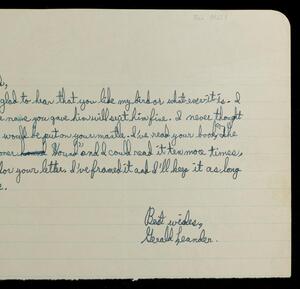 s,
glad to hear that you like my bird or what ever it is. I
name you gave him will suit him fine. I never thought
would be put on your mantle. I've read your book, the
House" and I could read it ten more times,
for your letter. I've framed it and I'll keep it as long
e.
Best wishes,
Gerald Leander.